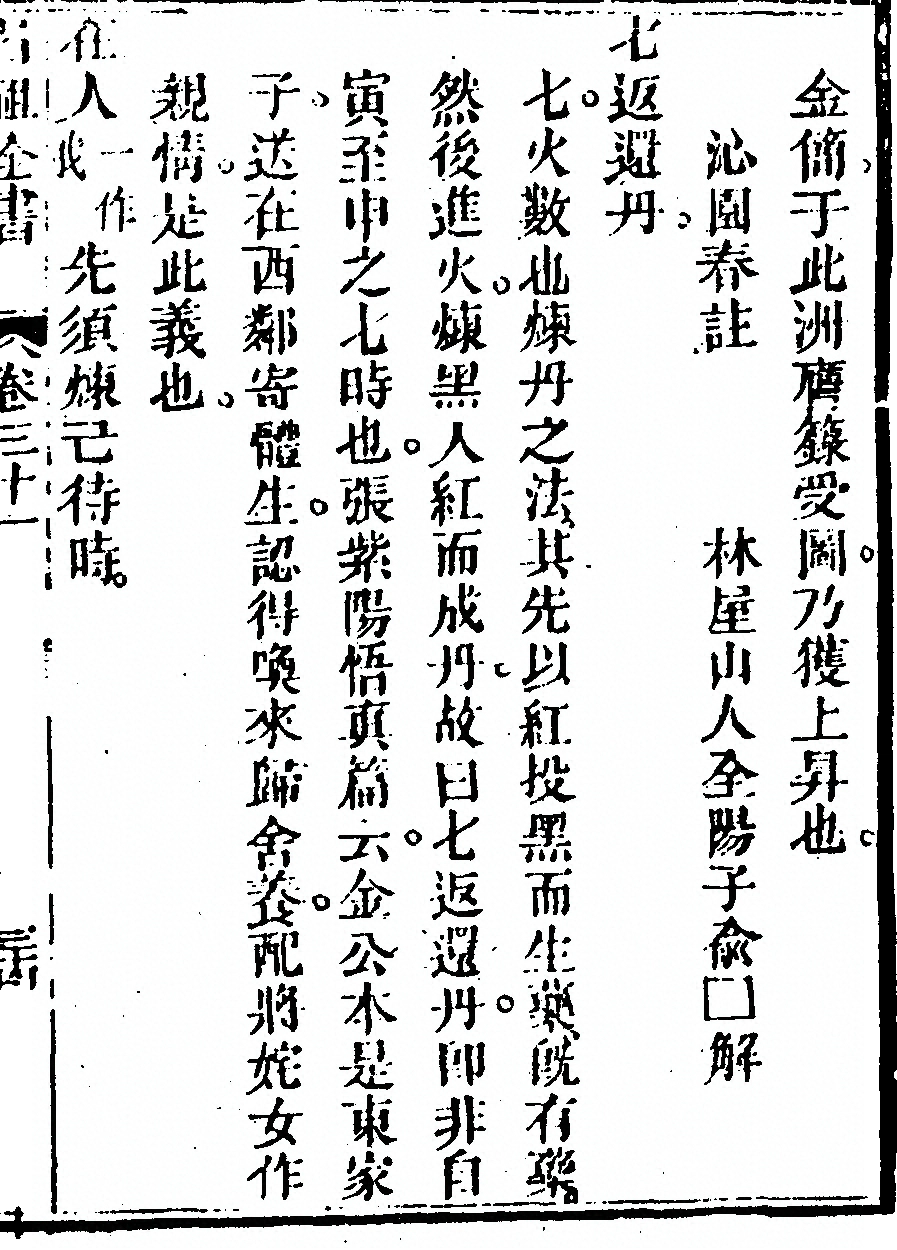 金簡于此洲膺籙受圖乃獲上昇也
沁園春註　林屋山人全陽子俞囗解
七返還丹
七火數也煉丹之法其先以紅投黑而生藥既有藥
然後進火煉黑入紅而成丹故曰七返還丹即非自
寅至申之七時也張紫陽悟真篇云金公本是東家
子送在西鄰寄體生認得喚來歸舍養配將姹女作
親情是此義也
在人一作我先須煉己待時
呂祖全書　卷三十一